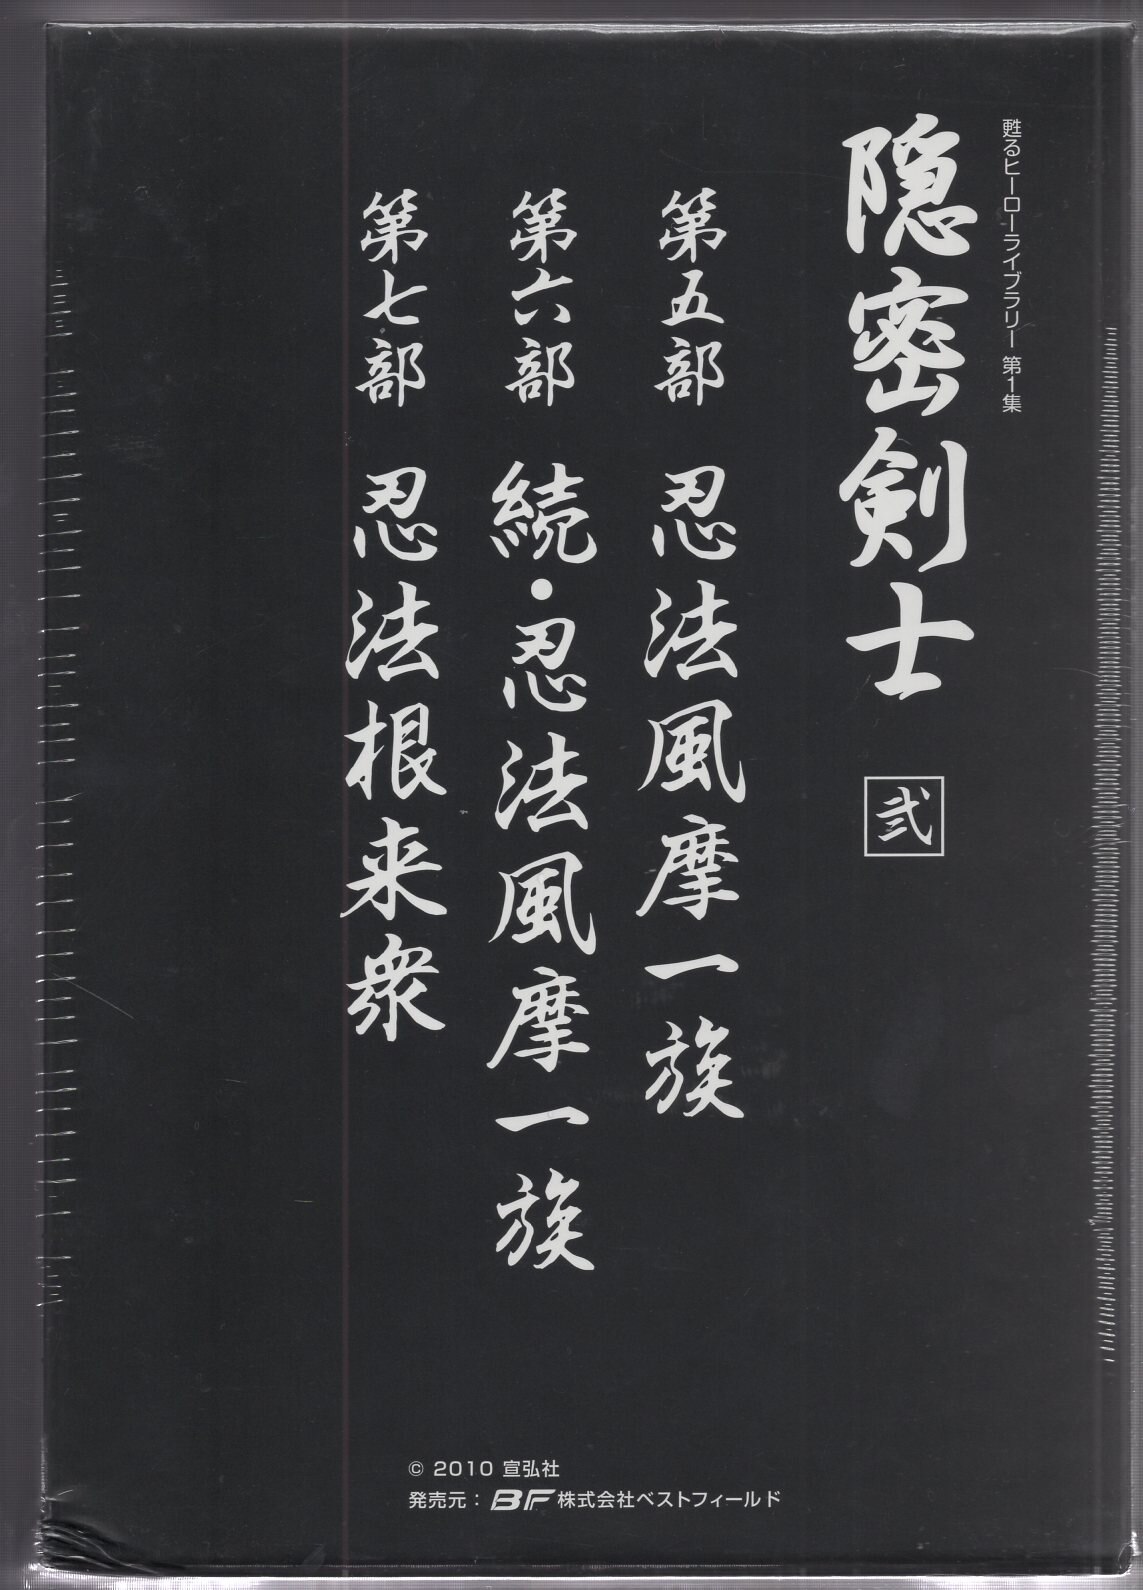 甦るヒーローライブラリー 第1集
隠密剣士 弐
第五部 忍法風摩一族
第六部 続・忍法風摩一族
第七部 忍法根来衆
© 2010 宣弘社
発売元：BF 株式会社ベストフィールド